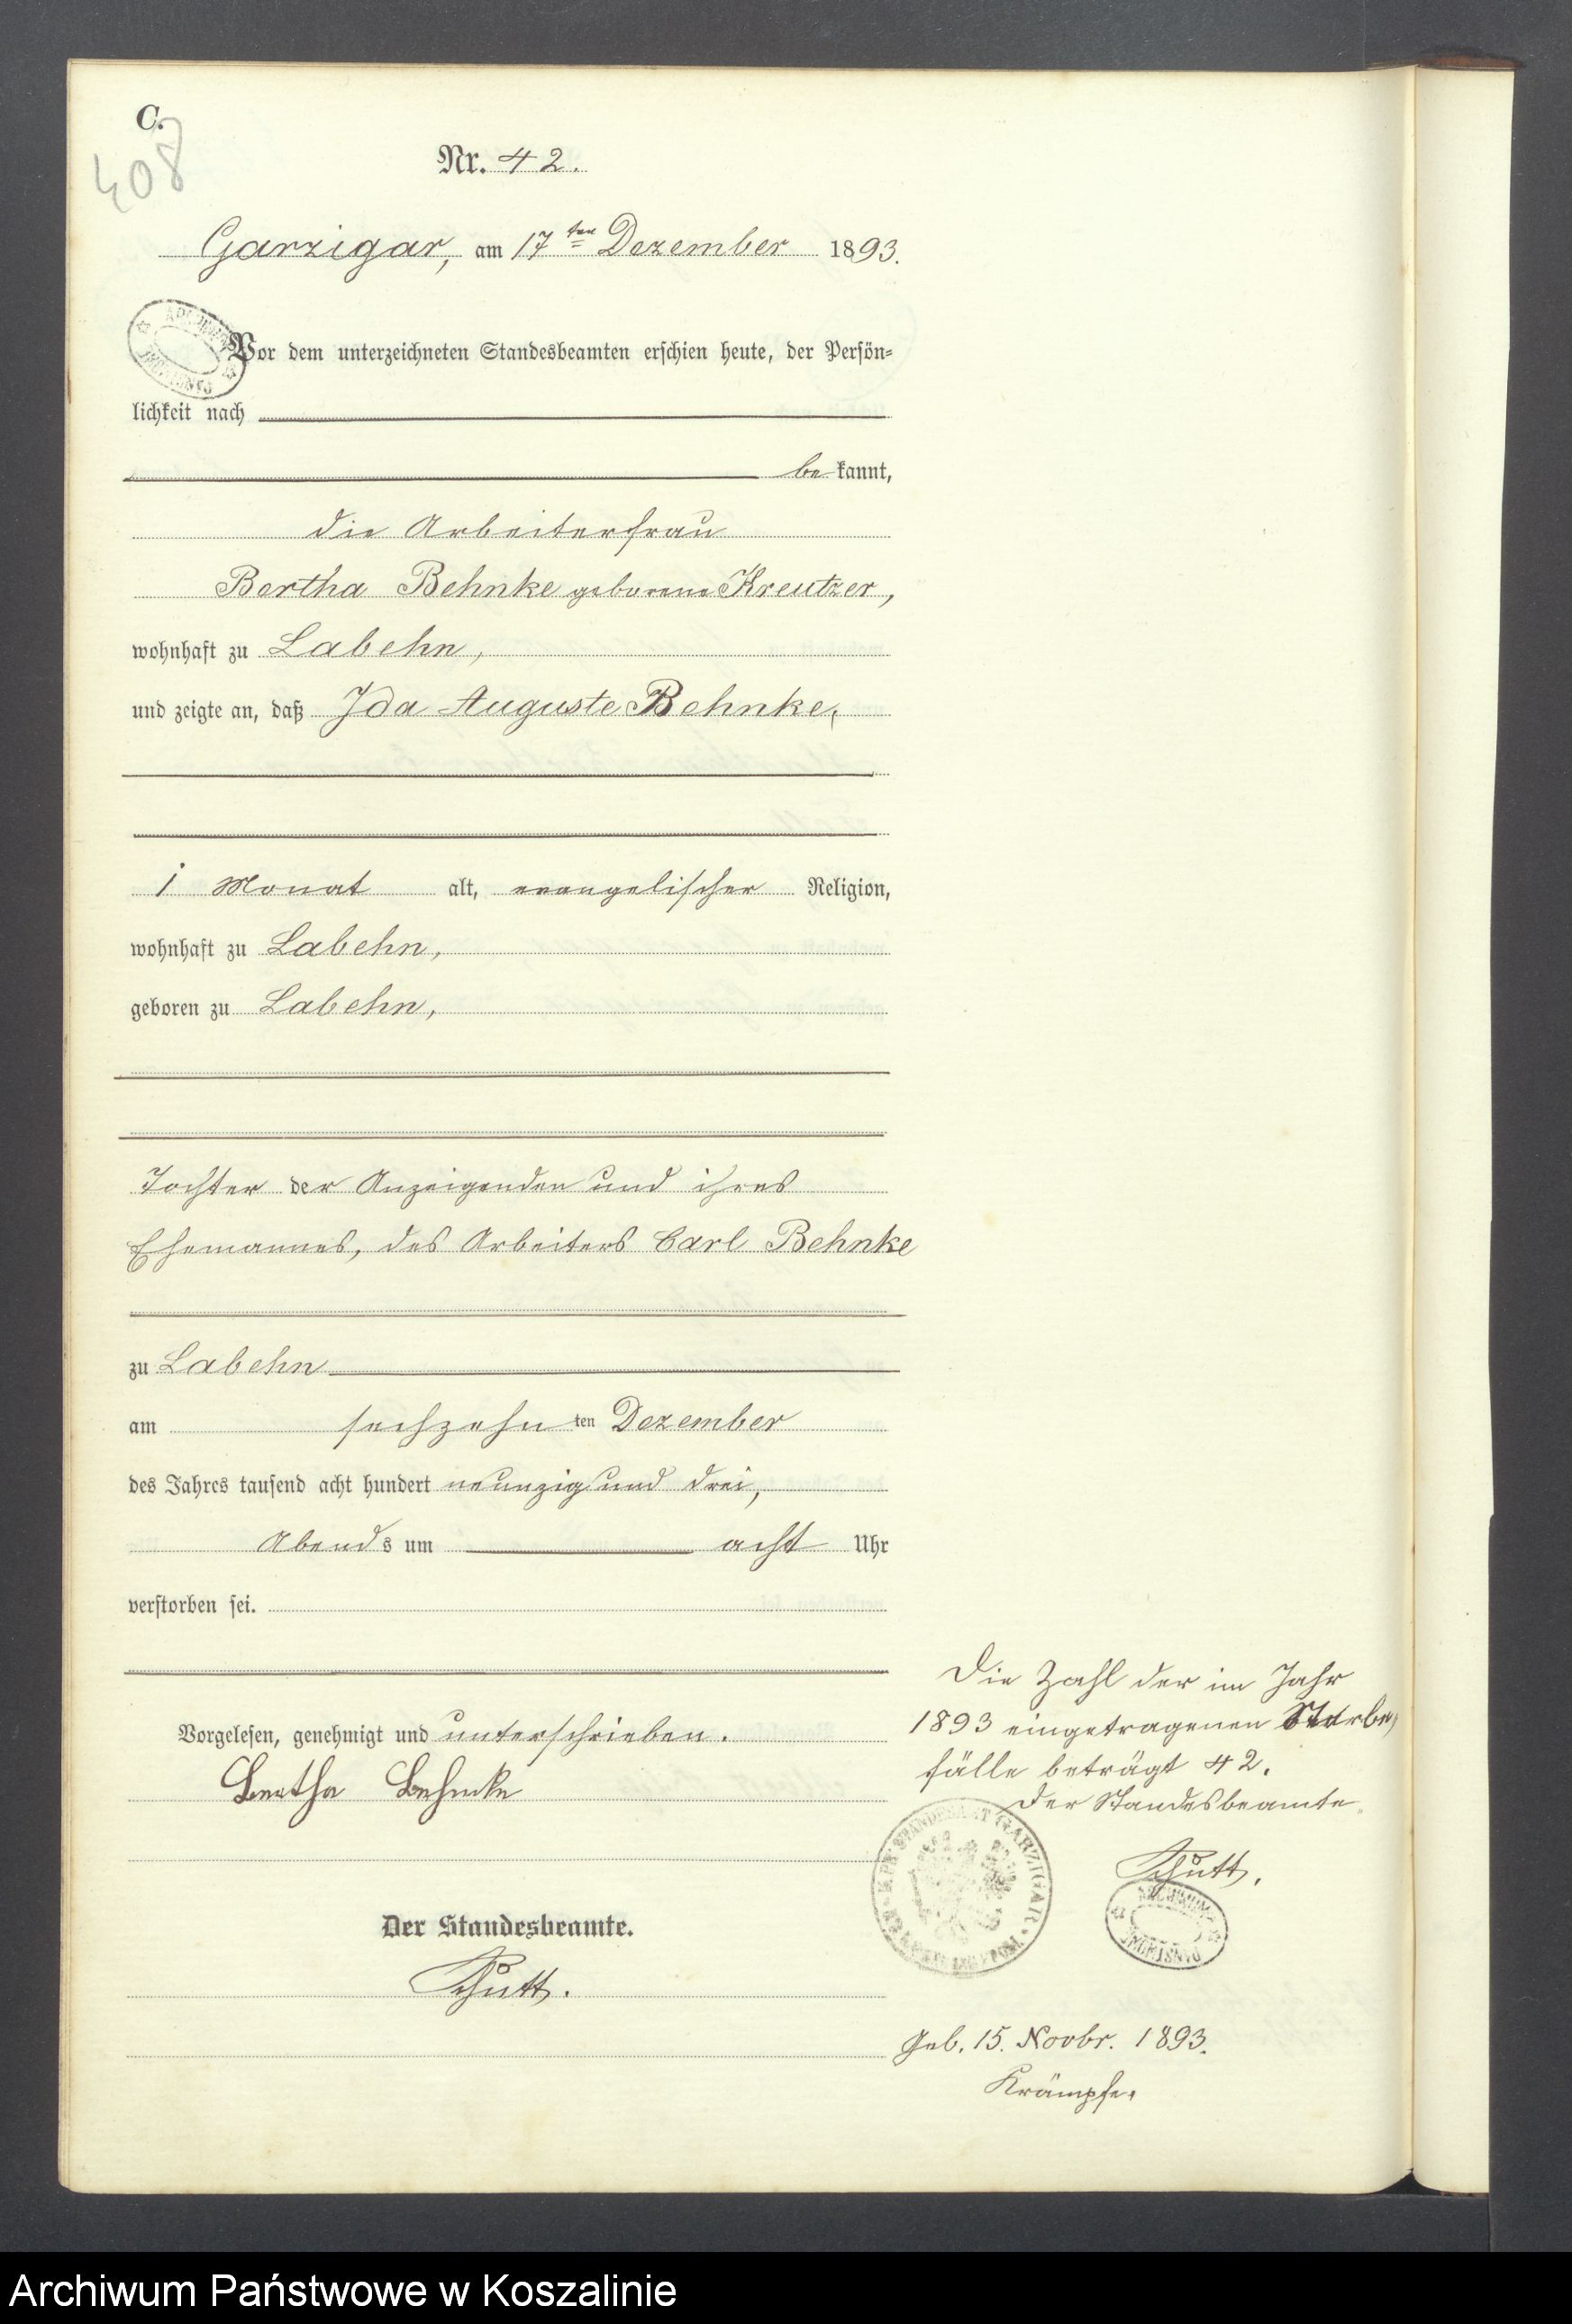 C.
408
Nr. 42.
Garzigar, am 17ten Dezember 1893.
Vor dem unterzeichneten Standesbeamten erschien heute, der Persön=
lichkeit nach
be kannt,
die Arbeiterfrau
Bertha Behnke geborene Kreutzer,
wohnhaft zu Labehn,
und zeigte an, daß Ida Auguste Behnke,
1 Monat alt, evangelischer Religion,
wohnhaft zu Labehn,
geboren zu Labehn,
Tochter der Anzeigenden und ihres
Ehemannes, des Arbeiters Carl Behnke
zu Labehn
am sechzehn ten Dezember
des Jahres tausend acht hundert neunzig und drei,
Abends um acht Uhr
verstorben sei.
Vorgelesen, genehmigt und unterschrieben.
Bertha Behnke
Der Standesbeamte.
Schutt.
Die Zahl der im Jahr
1893 eingetragenen Sterbe,
fälle beträgt 42.
Der Standesbeamte.
Schutt.
STANDESAMT GARZIGAR
Geb. 15. Novbr. 1893.
Krämpfe.
Archiwum Państwowe w Koszalinie